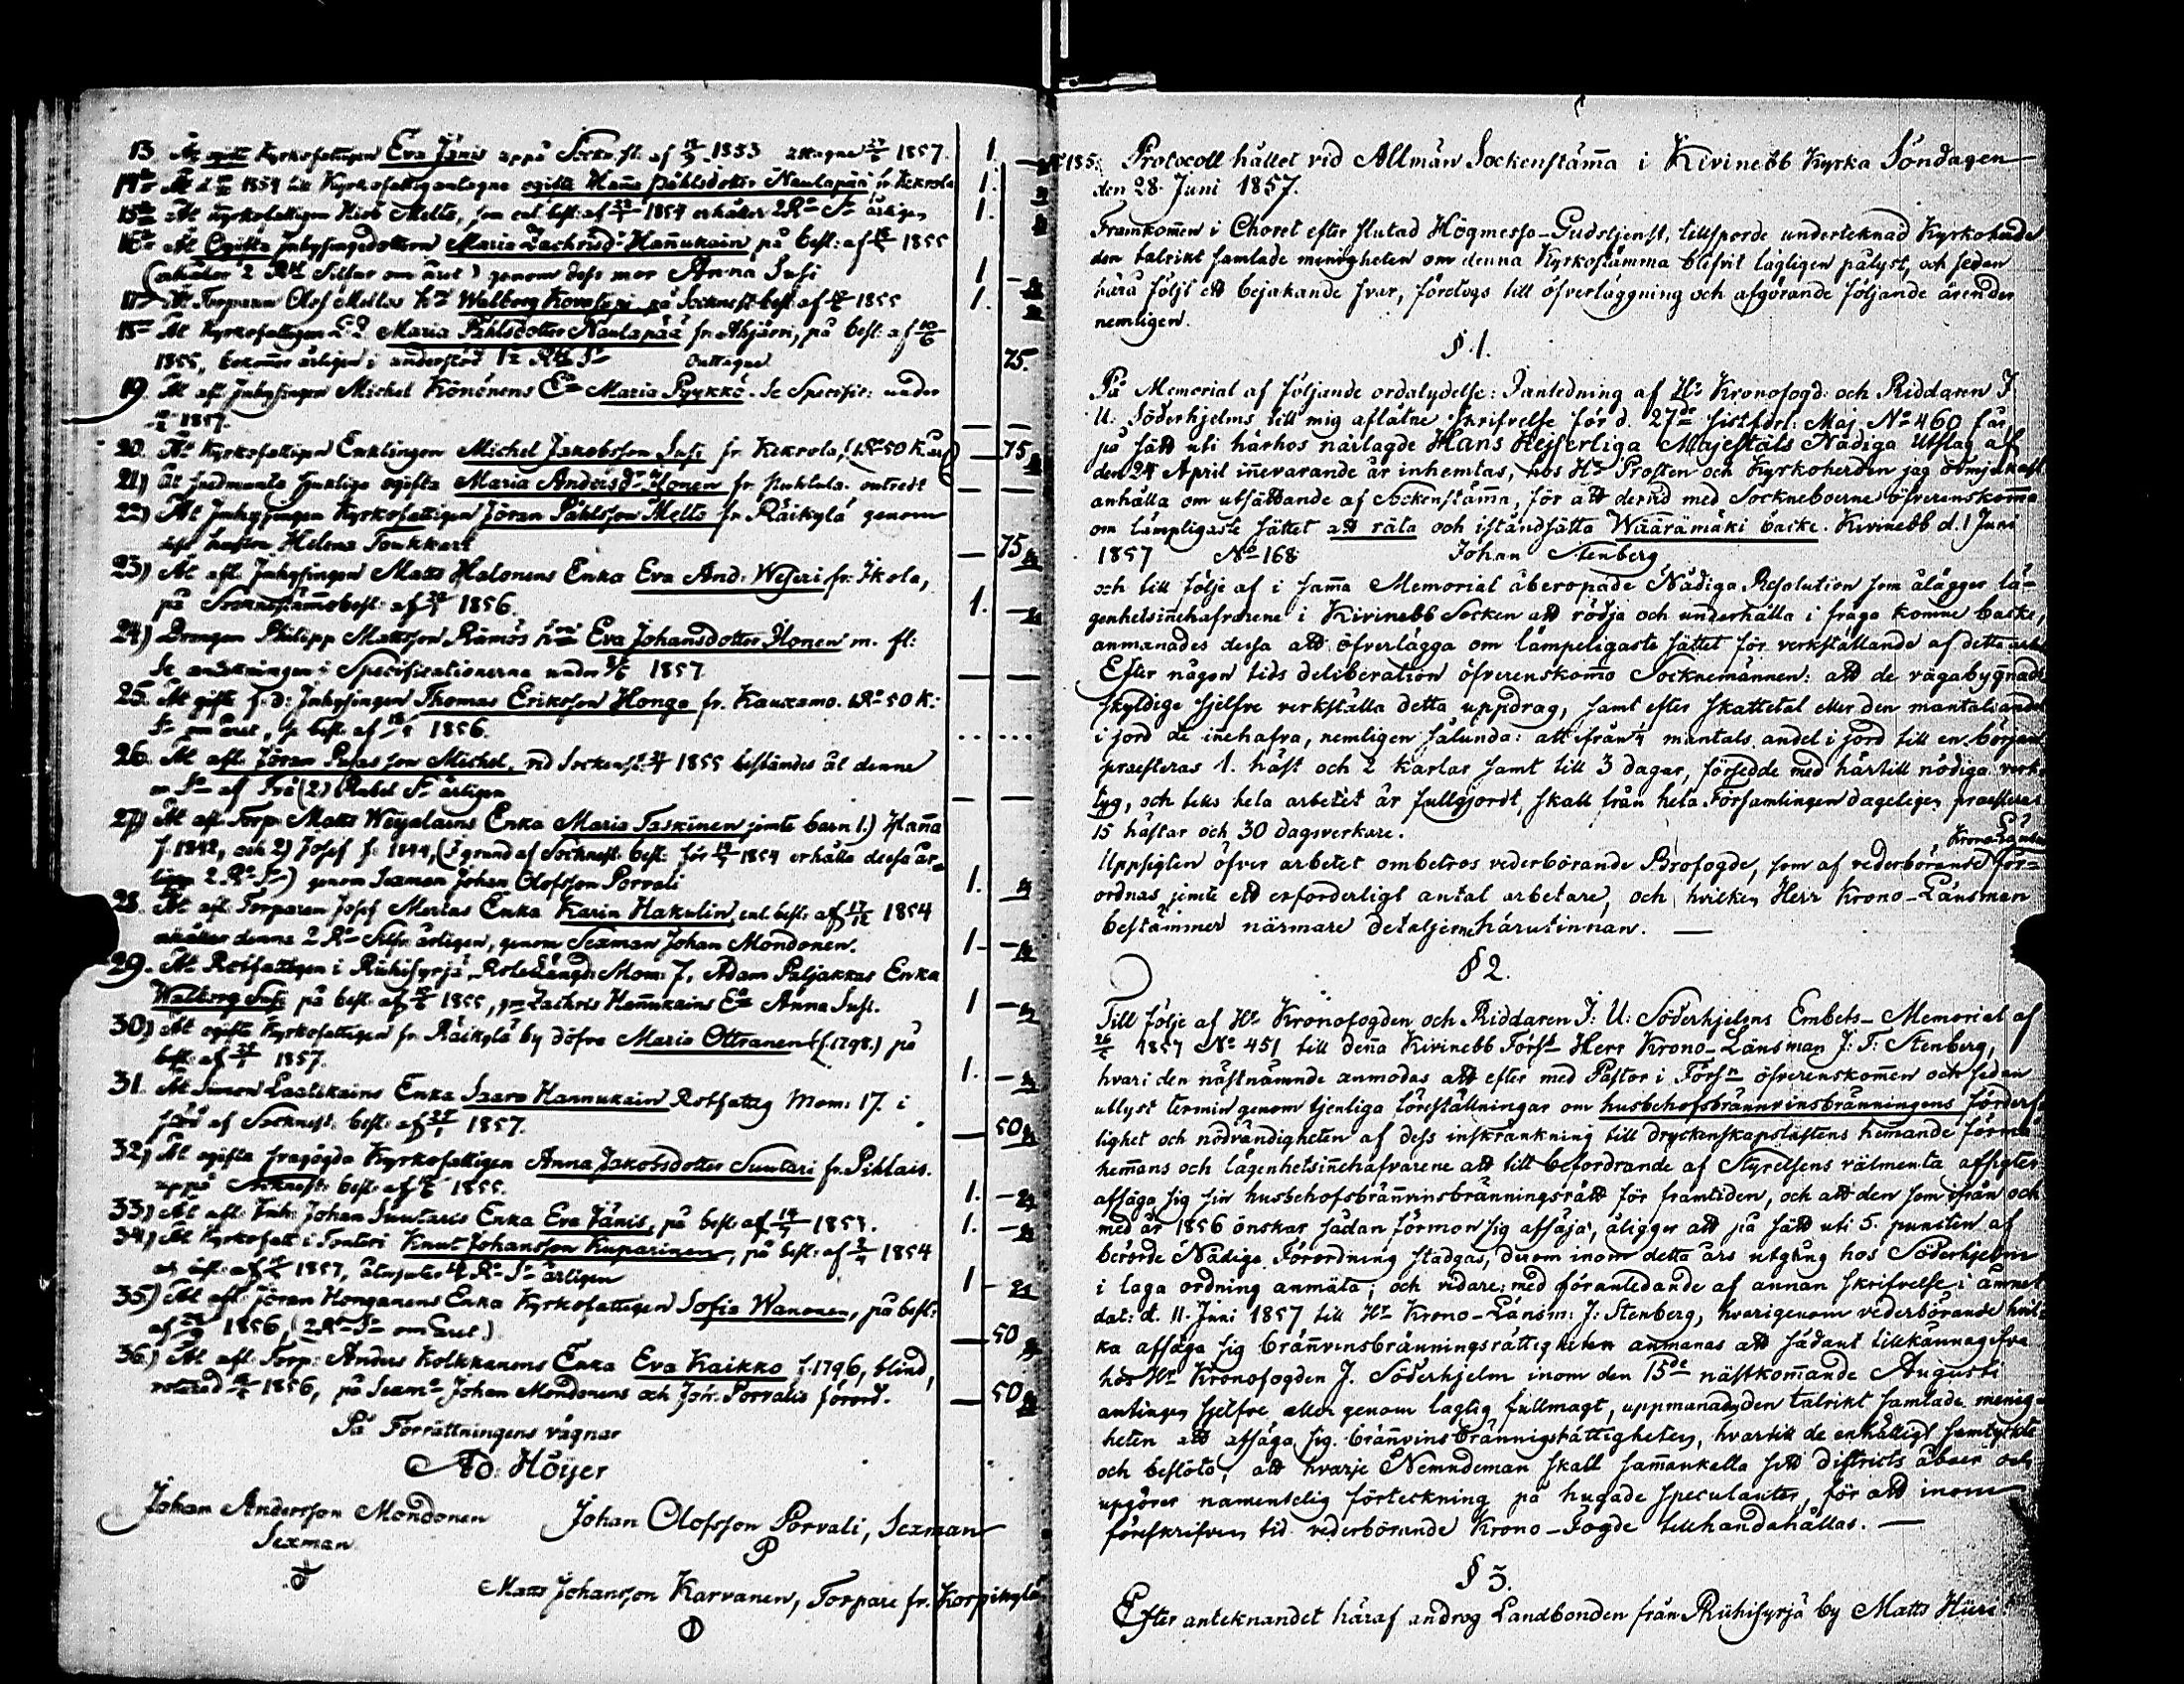 13. Åt ogift Kyrkofattigen Eva Jänis uppå Sockn.st. af 1853 1857. 1.
14de Åt 1854 till Kyrkofattig antagne ogifta Hanna Påhlsdotter Naulapää fr. Kekrola 1.
15de Åt Kyrkofattigen Melto, som enl. besl: af 1854 erhåller 2 Ro Sr årligen 1.
16de Åt Ogifta Inhysingsdottern Maria Zachrisdr Hannukain på besl: af 1855
(erhåller 2 Silfver om året) genom dess mor Anna Susi 1
17de Åt Torparen Olof Mellas Walborg på Sockenst. besl: af 1855 1.
18de Åt Kyrkofattigen Maria Påhlsdotter Naulapää fr. Ahjärvi, på besl: af
1855, bekommer årligen i understöd 75.
19. Åt afl. Inhysingen Michel Könönens Maria Pyykkö. Se Specific: under
1857. — —
20. Åt Kyrkofattigen Enklingen Michel Jakobsson Susi fr. Kekrola, — 75
21) Åt sjuklige ogifta Maria Andersdr Ilonen fr. — —
22) Åt Inhysingen Kyrkofattigen Jöran Påhlsson Melto fr. Räikylä genom
dess hustru Helena Toukkari — 75
23) Åt afl. Inhysingen Matts Halonens Enka Eva And: Weseri fr. Ikola,
på Sockenstämmobesl: af 1856. 1.
24) Drengen Philipp Mattsson Rämös Eva Johansdotter Ilonen m. fl:
Se anteckningen i Specificationerna under 1857 — —
25. Åt gifte f.d: Inhysingen Thomas Eriksson Honga fr. Kauxamo. 50 K:
om året, besl: af 1856.
26. Åt afl. Jöran son Michel, vid Sockenst. 1855 bestämdes åt denne
af Två (2) Rubel Sr årligen — —
27) Åt afl. Torp: Matts Enka Maria Taskinen jemte barn 1.) Hanna
f. 1842, och 2) Josef f. 1844, (I grund af Socknest. besl: för 1854 erhålla dessa år-
ligen 2 Ro Sr) genom Sexman Johan Olofsson Porvali 1.
28. Åt afl. Torparen Josef Enka Karin Hakulin, enl. besl: af 1854
erhåller denna 2 Ro Silfv. årligen, genom Sexman Johan Mondonen. 1
29. Åt Rotfattigen i Riihisyrjä Mom: 7, Adam Paljakkas Enka
Walborg Susi på besl: af 1855, gm Zachris Hannukains Anna Susi. 1
30) Åt ogifta Kyrkofattigen fr. Räikylä by döfva Maria Ottranen (f. 1798.) på
besl: af 1857. 1.
31. Åt Simon Laatikains Enka Saara Hannukain Rotfattig Mom: 17. i
stöd af Socknest. besl: af 1857. — 50
32) Åt ogifta Kyrkofattigen Anna Jakobsdotter Suutari fr. Pihlais.
uppå Socknest. besl: af 1855. 1.
33) Åt afl: Inh: Johan Suutaris Enka Eva Jänis, på besl: af 1853. 1.
34) Åt Kyrkofatt. i Tonteri Knut Johansson Kuparinen, på besl: af 1854
1857, årligen 1
35) Åt afl: Jöran Honganens Enka Kyrkofattigen Sofia Wanonen, på besl:
af 1856, (2 Ro Sr om året) — 50
36) Åt afl. Torp: Anders Kolkkanens Enka Eva Kaikko f. 1796, blind,
1856, på Sexmn Johan Mondonens och Joh: Porvalis förord. — 50
På Förrättningens vägnar
Ad: Höijer
Johan Andersson Mondonen
Sexman
Johan Olofsson Porvali, Sexman
P
Matts Johansson Karvanen, Torpare fr. Korpikylä
185. Protocoll hållet vid Allmän Sockenstämma i Kivinebb Kyrka Söndagen
den 28. Juni 1857.
Framkommen i Choret efter slutad Högmesso-Gudstjenst, tillsporde undertecknad Kyrkoherde
den talrikt samlade menigheten om denna Kyrkostämma blifvit lagligen pålyst, och sedan
härå följt ett bejakande svar, företogs till öfverläggning och afgörande följande ärender
nemligen.
§ 1.
På Memorial af följande ordalydelse: I anledning af Hr Kronofogd. och Riddaren J
U. Söderhjelms till mig aflåtne skrifvelse för d. 27de sistledl. Maj No 460 får,
på sätt uti härhos närlagde Hans Kejserliga Majestäts Nådiga Utslag af
den 24 April innevarande år inhemtas, hos Hr Prosten och Kyrkoherden jag ödmjukast
anhålla om utsättande af Sockenstämma, för att dervid med Sockneboerne öfverenskomma
om lämpligaste sättet att räta och iståndsätta Wäärämäki backe. Kivinebb d. 1 Juni
1857 No 168 Johan Stenberg
och till följe af i samma Memorial åberopade Nådiga Resolution som ålägger lä-
genhetsinnehafvarene i Kivinebb Socken att rödja och underhålla i fråga komne backe,
anmanades dessa att öfverlägga om lämpeligaste sättet för verkställande af detta
Efter någon tids deliberation öfverenskommo Socknemännen: att de vägabyggnads
skyldige sjelfve verkställa detta uppdrag, samt efter skattetal eller den mantalsandel
i jord de innehafva, nemligen sålunda: att ifrån mantals andel i jord till en början
praesteras 1. häst och 2 karlar samt till 3 dagar, försedde med härtill nödiga verk-
tyg, och tills hela arbetet är fullgjordt, skall från hela Församlingen dageligen praesteras
15 hästar och 30 dagsverkare.
Uppsigten öfver arbetet ombetros vederbörande Brofogde, som af vederbörande Krono Länsm för-
ordnas jemte ett erforderligt antal arbetare, och hvilken Herr Krono-Länsman
bestämmer närmare detaljerne härutinnan. —
§ 2.
Till följe af Hr Kronofogden och Riddaren J: U: Söderhjelms Embets-Memorial af
26/5 1857 No 451 till denna Kivinebb Förs: Herr Krono-Länsman J: F: Stenberg,
hvari den nästnämnde anmodas att efter med Pastor i Förs:n öfverenskommen och sedan
utlyst termin genom tjenliga föreställningar om husbehofsbrännvinsbränningens förderf-
lighet och nödvändigheten af dess inskränkning till dryckenskapslastens hemande förmå
hemmans och lägenhetsinnehafvarene att till befordrande af Styrelsens välmenta afsigter
afsäga sig sin husbehofsbrännvinsbränningsrätt för framtiden, och att den som ifrån och
med år 1856 önskar sådan förmon sig afsäja, åligger att på sätt uti 5. puncten af
berörde Nådiga Förordning stadgas, derom inom detta års utgång hos Söderhjelm
i laga ordning anmäla, och vidare: med föranledande af annan skrifvelse i ämnet
dat: d. 11. Juni 1857 till Hr Krono-Länsm: J: Stenberg, hvarigenom vederbörande hvil-
ka afsäga sig brännvinsbränningsrättigheten anmanas att sådant tillkännagifva
hos Hr Kronofogden J. Söderhjelm inom den 15de nästkommande Augusti
antingen sjelfve eller genom laglig fullmagt, uppmanades den talrikt samlade menig-
heten att afsäga sig brännvinsbränningsrättigheten, hvartill de enhälligt samtyckte
och beslöto, att hvarje Nemndeman skall sammankalla sitt districts åboer och
upgörer namentelig förteckning på hugade speculanter, för att inom
föreskrifven tid vederbörande Krono-Fogde tillhandahållas. —
§ 3.
Efter antecknandet häraf androg Landbonden från Riihisyrjä by Matts Hiiri